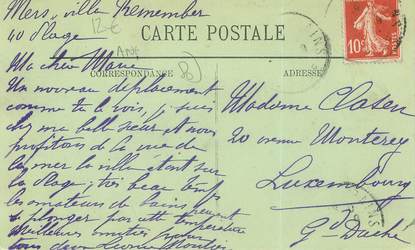 Mers, villa Remember
12€
40 Plage
ANF
CARTE POSTALE
10c
POSTES
Ma chère Marie
CORRESPONDANCE
ADRESSE
Un nouveau déplacement
comme tu le vois, je suis
chez ma belle sœur et nous
profitons de la vue de
la mer la villa étant sur
la Plage, très beau temps
les amateurs de bains peuvent
plonger par cette température
Meilleures amitiés pour
vous deux
Madame Clasen
20 avenue Monterey
Luxembourg
Gd Duché